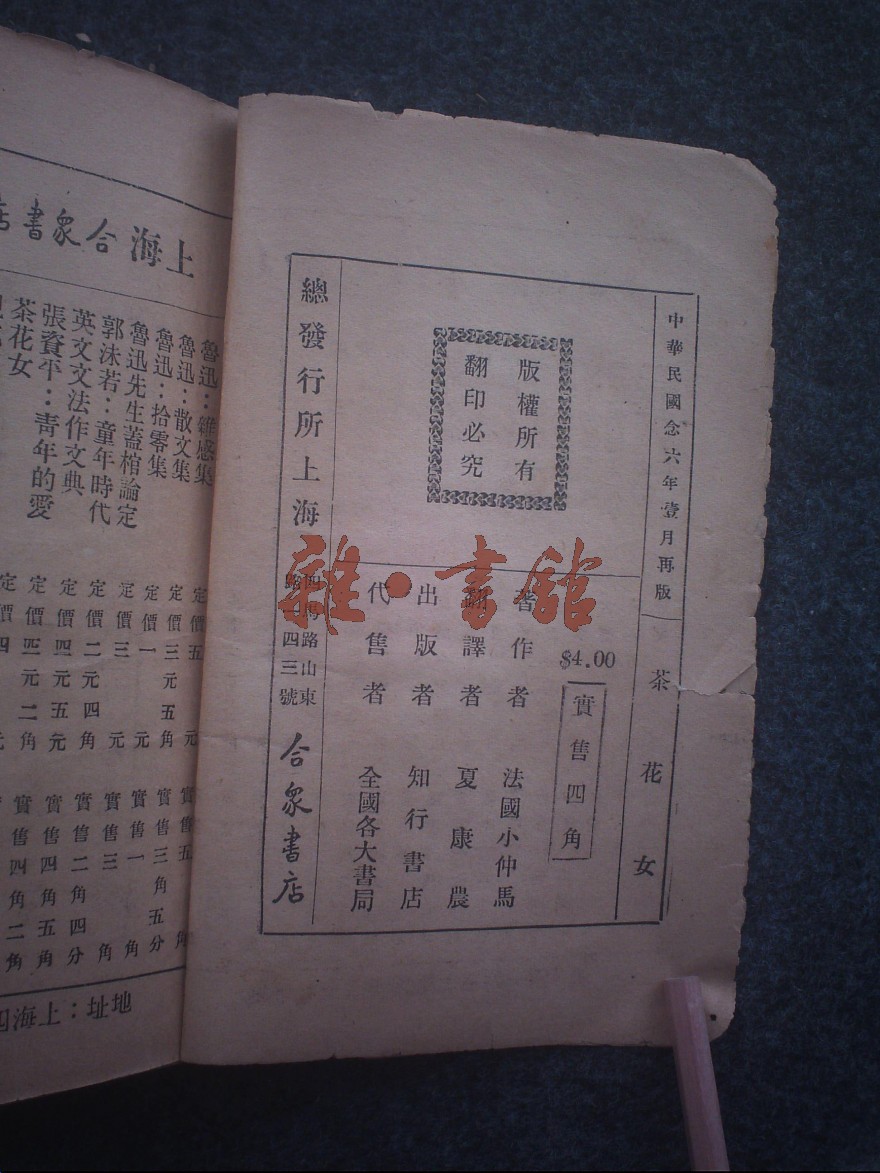 中華民國念六年壹月再版
茶花女
版權所有
翻印必究
$4.00
實售四角
著作者 法國小仲馬
翻譯者 夏康農
出版者 知行書店
代售者 全國各大書局
總發行所上海
四馬路山東
路一四三號
合衆書店
雜·書館
上海合衆書店
魯迅：雜感集 定價五元 實售五角
魯迅：散文集 定價三元五角 實售三角五分
魯迅：拾零集 定價一元 實售一角
魯迅先生蓋棺論定 定價三元 實售三角
郭沫若：童年時代 定價二元四角 實售二角四分
英文文法作文典 定價四元五角 實售四角五分
張資平：靑年的愛 定價四元二角 實售四角二角
茶花女 定價四元
地址：上海四